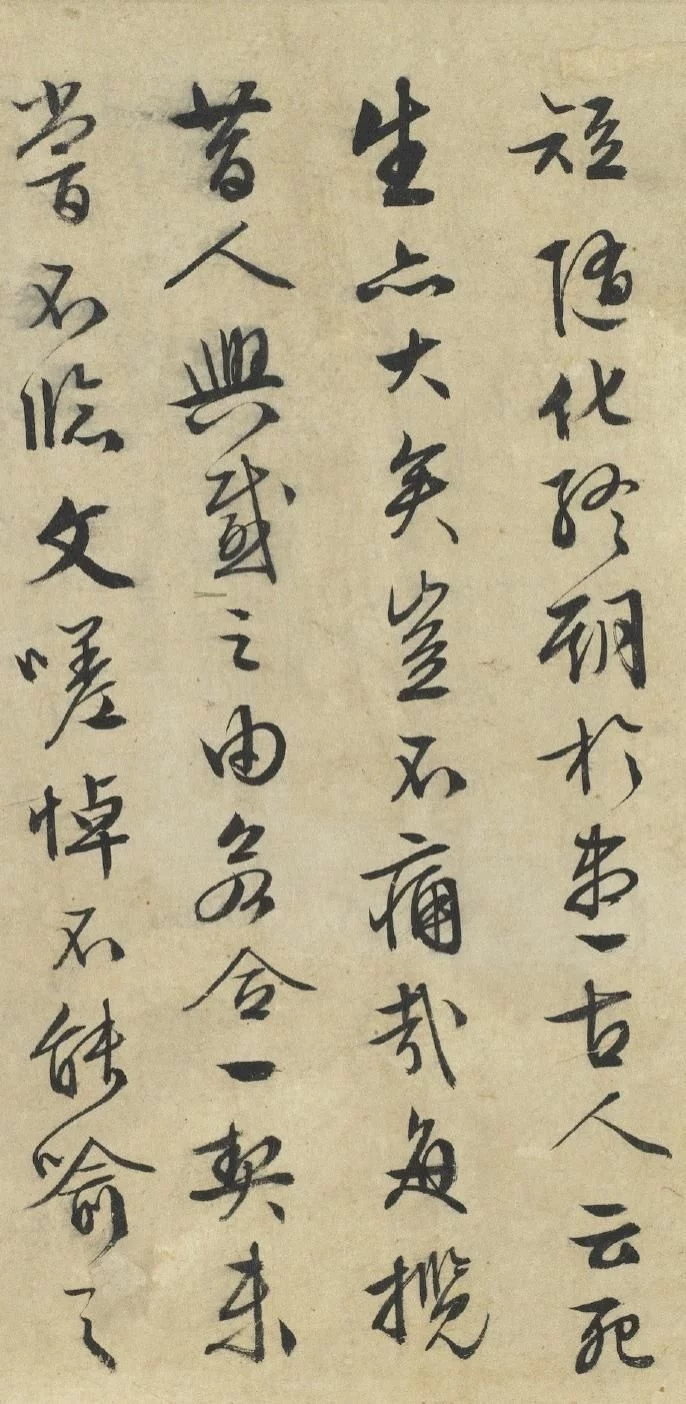 短随化终期於尽古人云死
生亦大矣岂不痛哉每揽
昔人兴感之由若合一契未
尝不临文嗟悼不能喻之